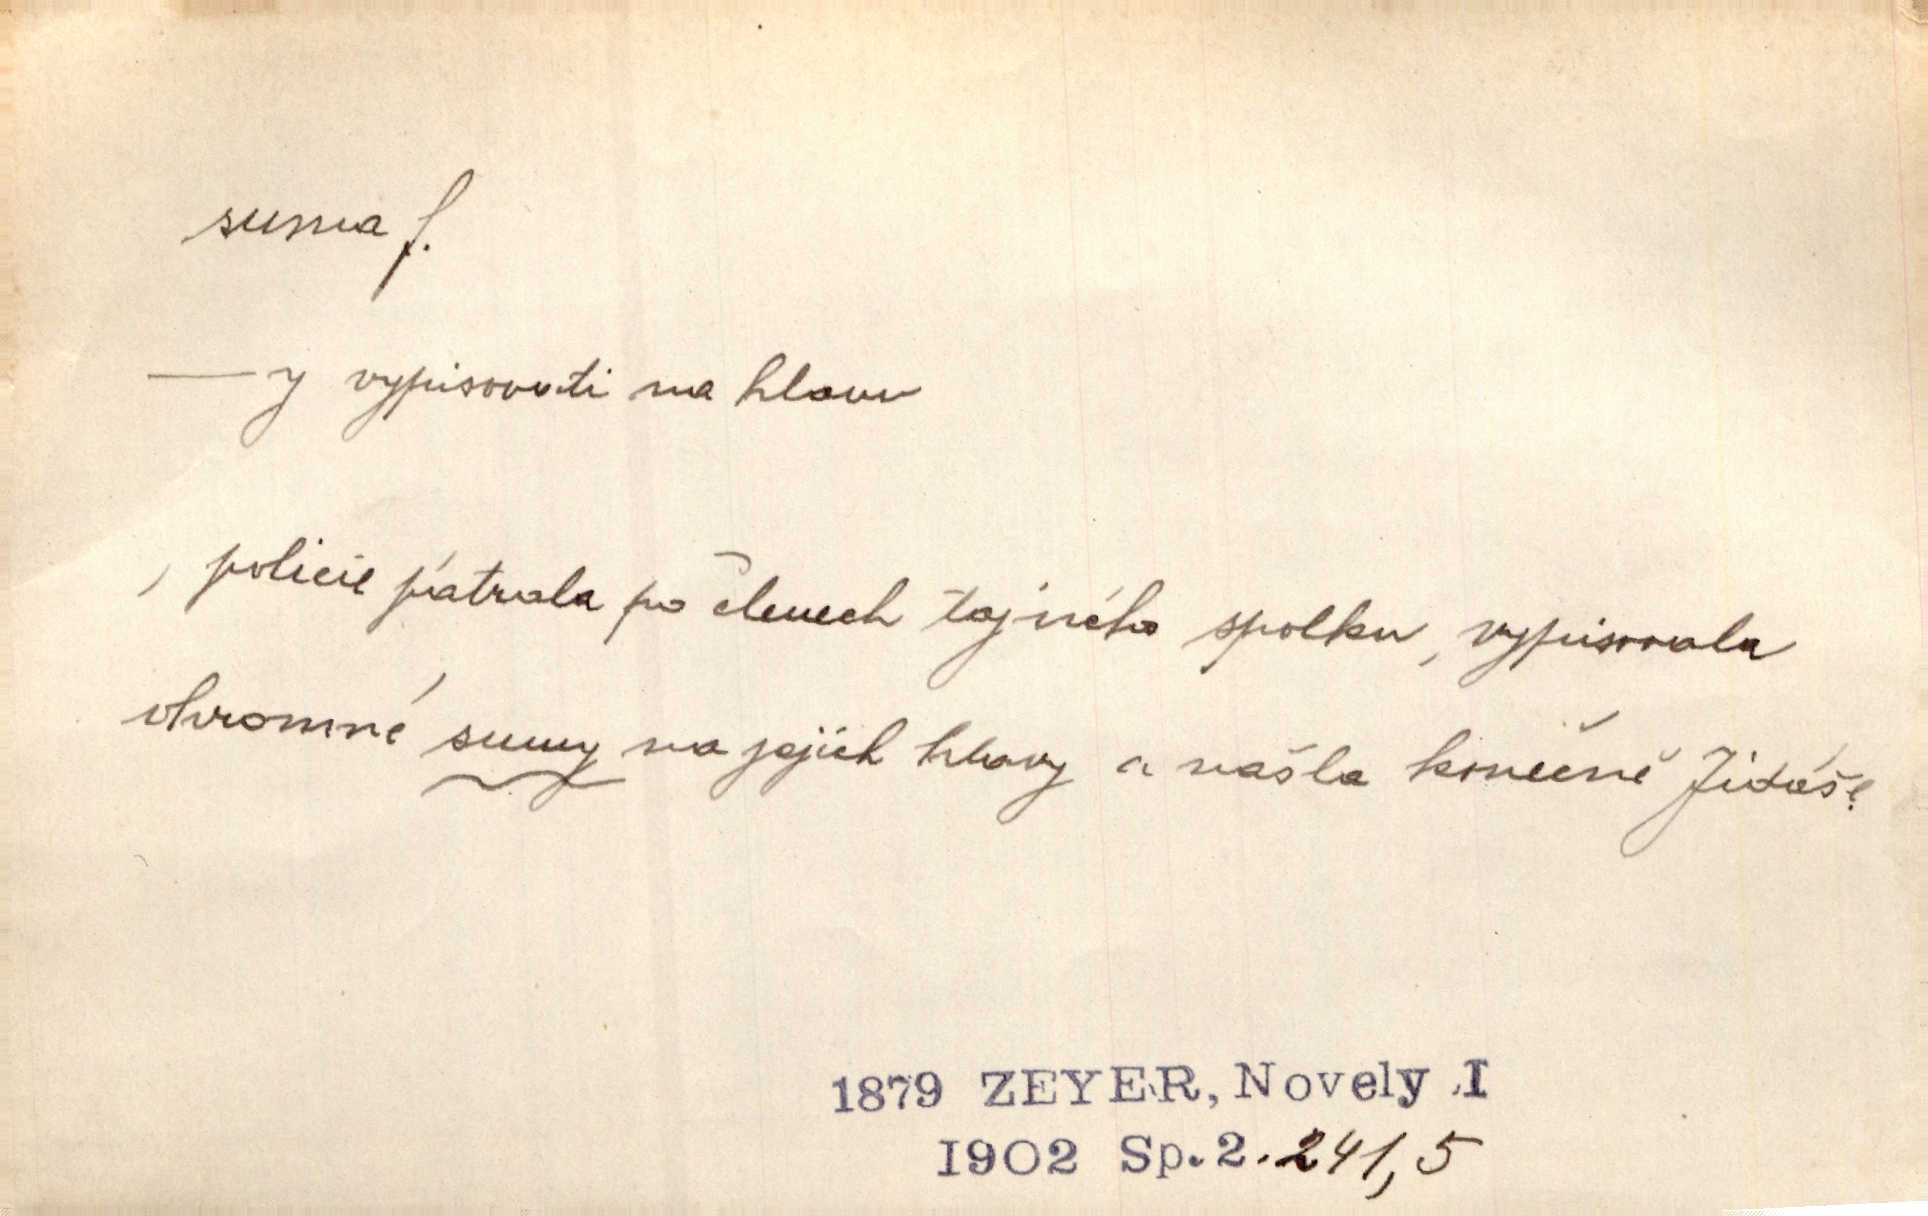 suma f.
—y vypisovati na hlavu
, policie pátrala po členech tajného spolku, vypisovala
ohromné sumy na jejich hlavy a našla konečně Jidáše
1879 ZEYER, Novely I
1902 Sp. 2. 241,5